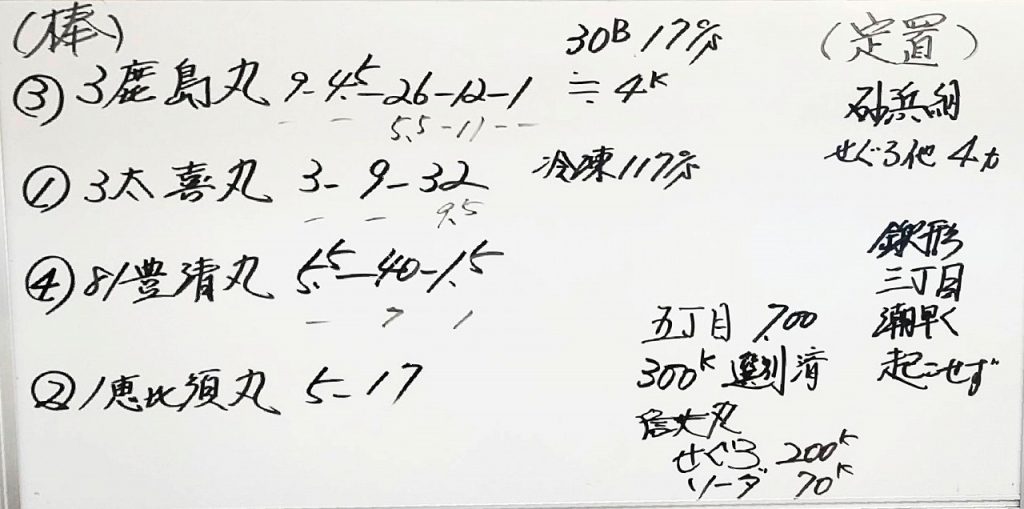 (棒)
③ 3鹿島丸 9-4.5-26-12-1
- - 5.5-11--
30B 17%
≒4K
① 3太喜丸 3-9-32
- - 9.5
冷凍 117%
④ 81豊清丸 5.5-40-1.5
- 7 1
② 1恵比須丸 5-17
五丁目 7.00
300K 選別済
せぐろ 200K
ソーダ 70K
(定置)
砂浜組
せぐろ他 4カ
三丁目
潮早く
起こせず